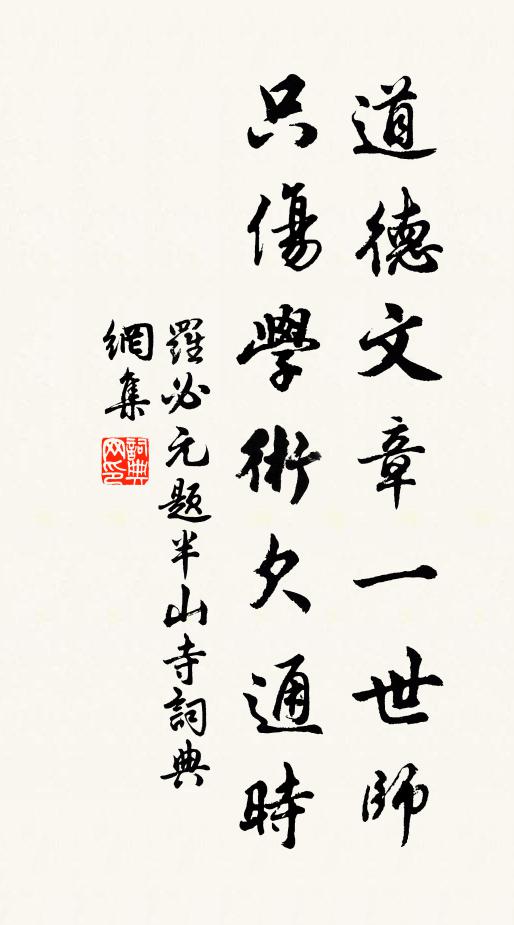 道德文章一世師
只傷學術欠通時
羅必元題半山寺詞典
網集
詞典網印